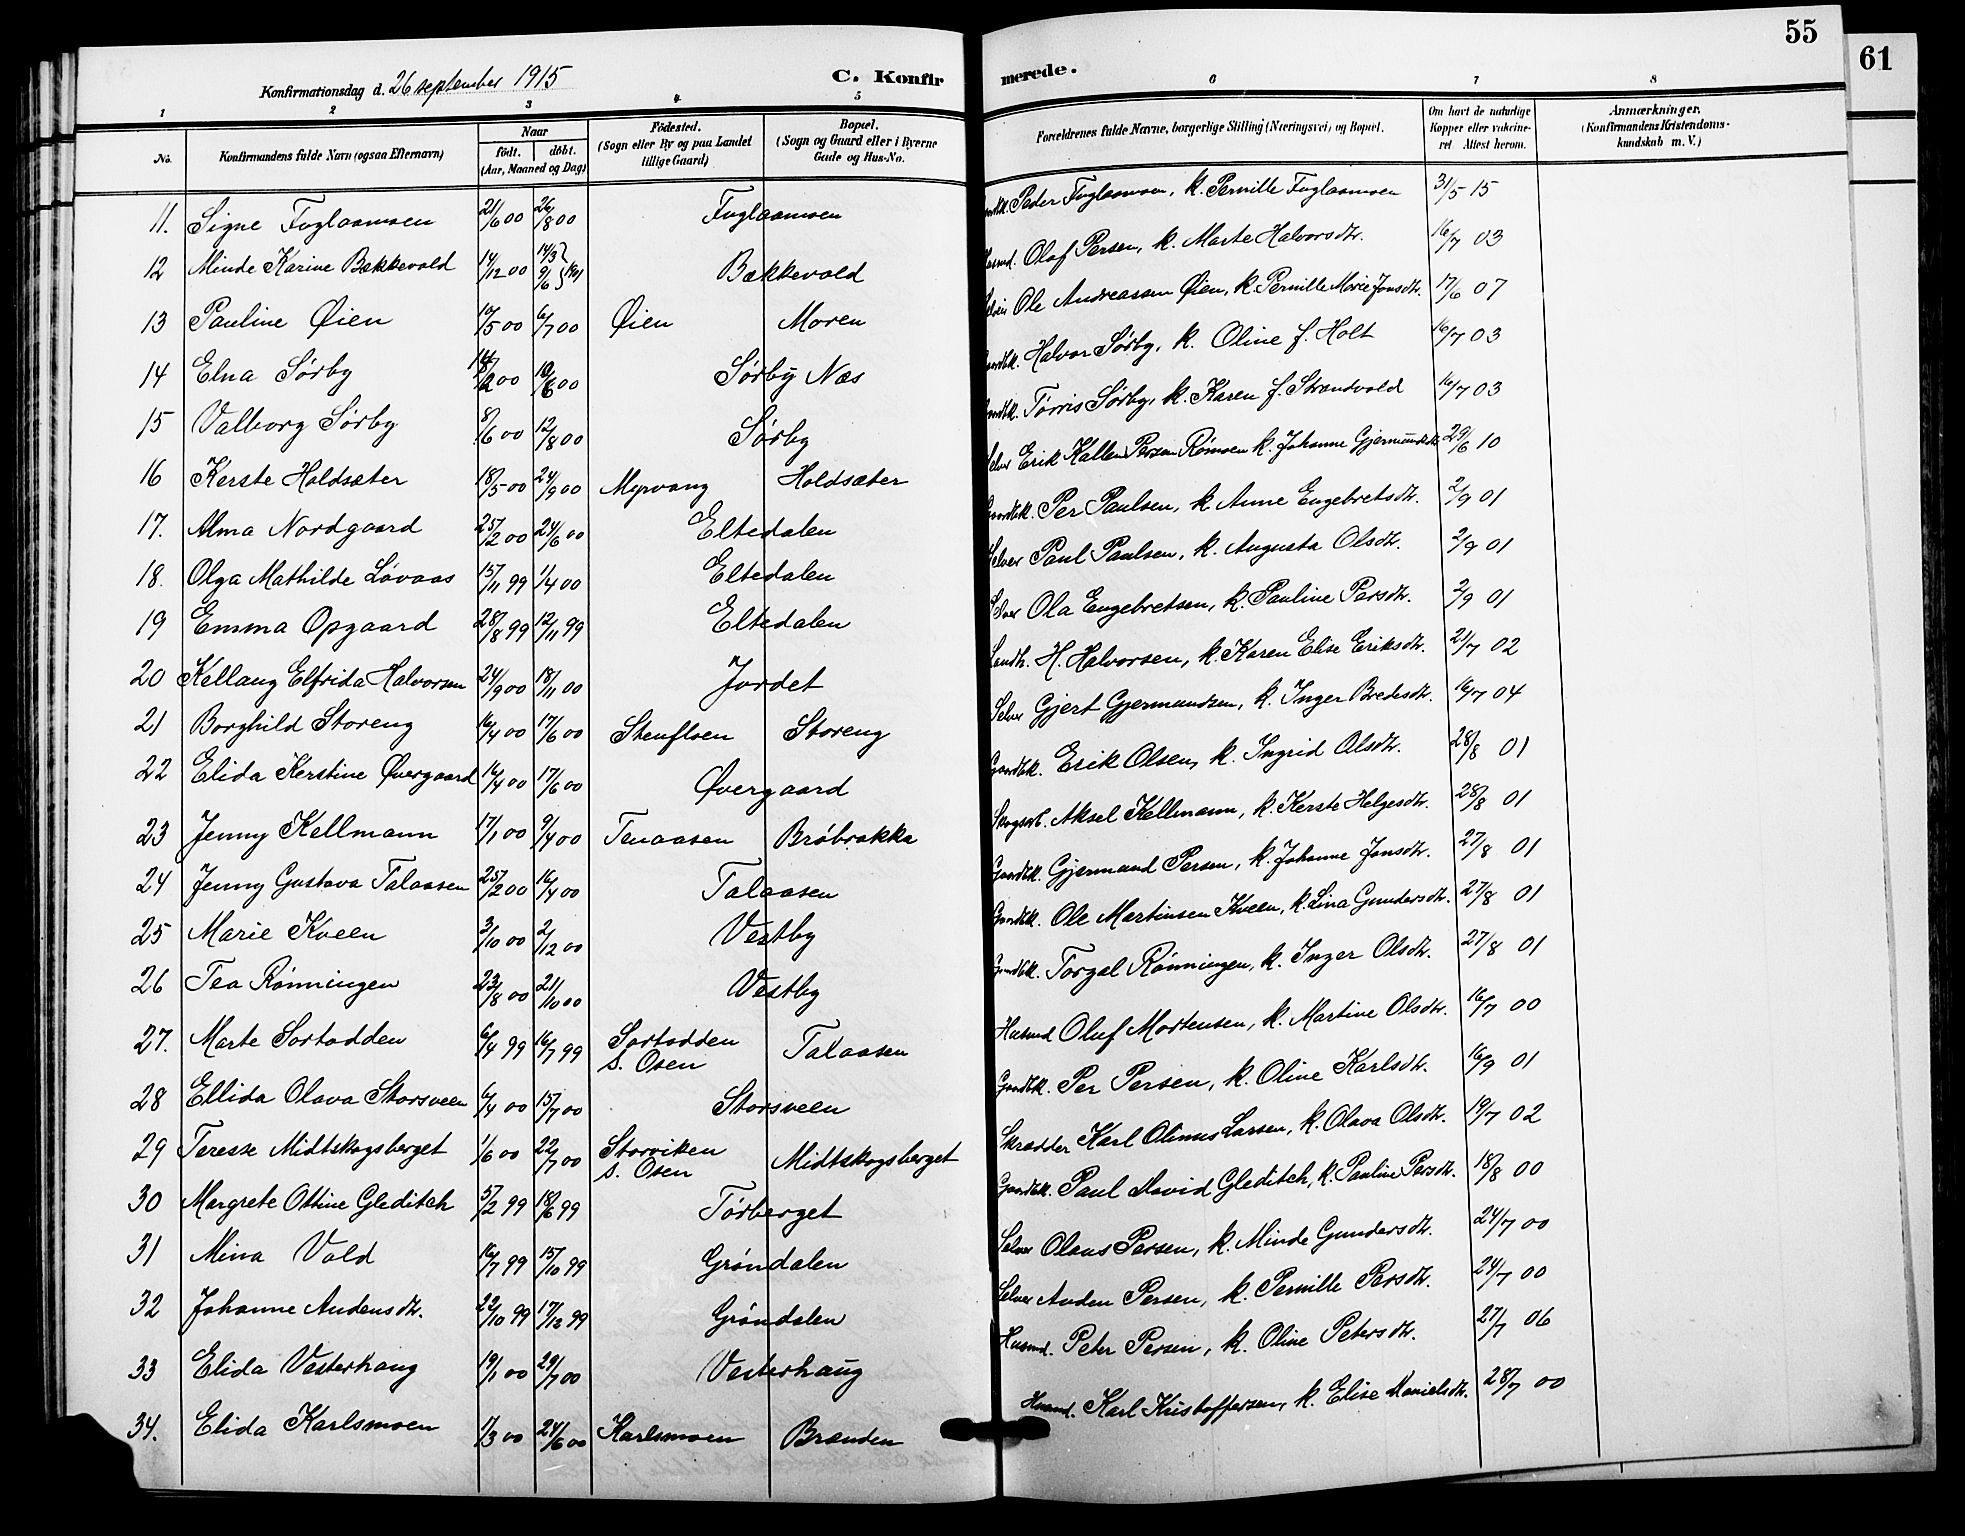 55
61
Konfirmationsdag d. 26 september 1915
C. Konfirmerede.
1 2 3 4 5 6 7 8
No. Konfirmandens fulde Navn (ogsaa Efternavn) Naar født. døbt. (Aar, Maaned og Dag) Fødested. (Sogn eller By og paa Landet tillige Gaard) Bopæl. (Sogn og Gaard eller i Byerne Gade og Hus-No. Forældrenes fulde Navne, borgerlige Stilling (Næringsvei) og Bopæl. Om havt de naturlige Kopper eller vakcineret. Attest herom. Anmærkninger. (Konfirmandens Kristendomskundskab m. V.)
11. Signe Fuglaamoen 21/6 00 26/8 00 Fuglaamoen Peder Fuglaamoen, k. Pernille Fuglaamoen 31/5 15
12 Minde Karine Bækkevold 14/12 00 Bækkevold Husmd. Olaf Persen, k. Marte Halvorsdtr. 16/7 03
13 Pauline Øien 10/5 00 6/7 00 Øien Moren Ole Andreassen Øien, k. Pernille Marie Jonsdtr. 17/6 07
14 Elna Sørby 00 10/6 00 Sørby Næs Gaardbk. Halvor Sørby, k. Oline f. Holt 16/7 03
15 Valborg Sørby 8/6 00 12/8 00 Sørby Gaardbk. Tørris Sørby, k. Karen f. Strandvold 16/7 03
16 Kerste Holdsæter 18/5 00 24/9 00 Myrvang Holdsæter Selver Erik Kallen Persen Rømoen k. Johanne Gjermundsdtr. 29/6 10
17. Alma Nordgaard 25/2 00 24/6 00 Eltedalen Gaardbk. Per Paulsen, k. Anne Engebretsdtr. 2/9 01
18. Olga Mathilde Løvaas 15/11 99 1/4 00 Eltedalen Selver Paul Paulsen, k. Augusta Olsdtr. 2/9 01
19 Emma Opgaard 28/8 99 12/11 99 Eltedalen Selver Ola Engebretsen, k. Pauline Persdtr. 2/9 01
20 Kellaug Elfrida Halvorsen 24/9 00 18/11 00 Jordet Landh. H. Halvorsen, k. Karen Elise Eriksdtr. 21/7 02
21 Borghild Storeng 16/4 00 17/6 00 Stenfloen Storeng Selver Gjert Gjermundsen, k. Inger Bredesdtr. 16/7 04
22 Elida Kerstine Øvergaard 16/4 00 17/6 00 Øvergaard Gaardbk. Erik Olsen, k. Ingrid Olsdtr. 28/8 01
23 Jenny Kellmann 17/1 00 9/4 00 Tenaasen Brøbrakka Skogsarb. Aksel Kellmann, k. Kerste Helgesdtr. 28/8 01
24 Jenny Gustava Talaasen 25/2 00 16/4 00 Talaasen Gaardbk. Gjermund Persen, k. Johanne Jonsdtr. 27/8 01
25 Marie Kveen 3/10 00 2/12 00 Vestby Gaardbk. Ole Martinsen Kveen, k. Lina Gundersdtr. 27/8 01
26 Tea Rønningen 23/8 00 21/10 00 Vestby Gaardbk. Torgal Rønningen, k. Inger Olsdtr. 27/8 01
27. Marte Sortodden 6/4 99 16/7 99 Sortodden s. Osen Talaasen Husmd Oluf Mortensen, k. Martine Olsdtr. 16/7 00
28 Ellida Olava Storsveen 6/4 00 15/7 00 Storsveen Gaardbk. Per Persen, k. Oline Karlsdtr. 16/9 01
29 Terese Midtskogsberget 1/6 00 22/7 00 Storviken s. Osen Midtskogsberget Skrædder Karl Olinus Larsen, k. Olava Olsdtr. 19/7 02
30 Margrete Ottine Gleditch 5/2 99 18/6 99 Tørberget Gaardbk. Paul David Gleditch, k. Pauline Persdtr. 18/8 00
31 Mina Vold 16/7 99 15/10 99 Grøndalen Selver Olaus Persen, k. Minde Gundersdtr. 24/7 00
32 Johanne Audensdtr. 22/10 99 17/12 99 Grøndalen Selver Auden Persen, k. Pernille Persdtr. 24/7 00
33 Elida Vesterhaug 19/1 00 29/7 00 Vesterhaug Husmd. Peter Persen, k. Oline Petersdtr. 27/7 06
34. Elida Karlsmoen 00 24/6 00 Karlsmoen Brænden Husmd. Karl Kristoffersen, k. Elise Danielsdtr. 28/7 00